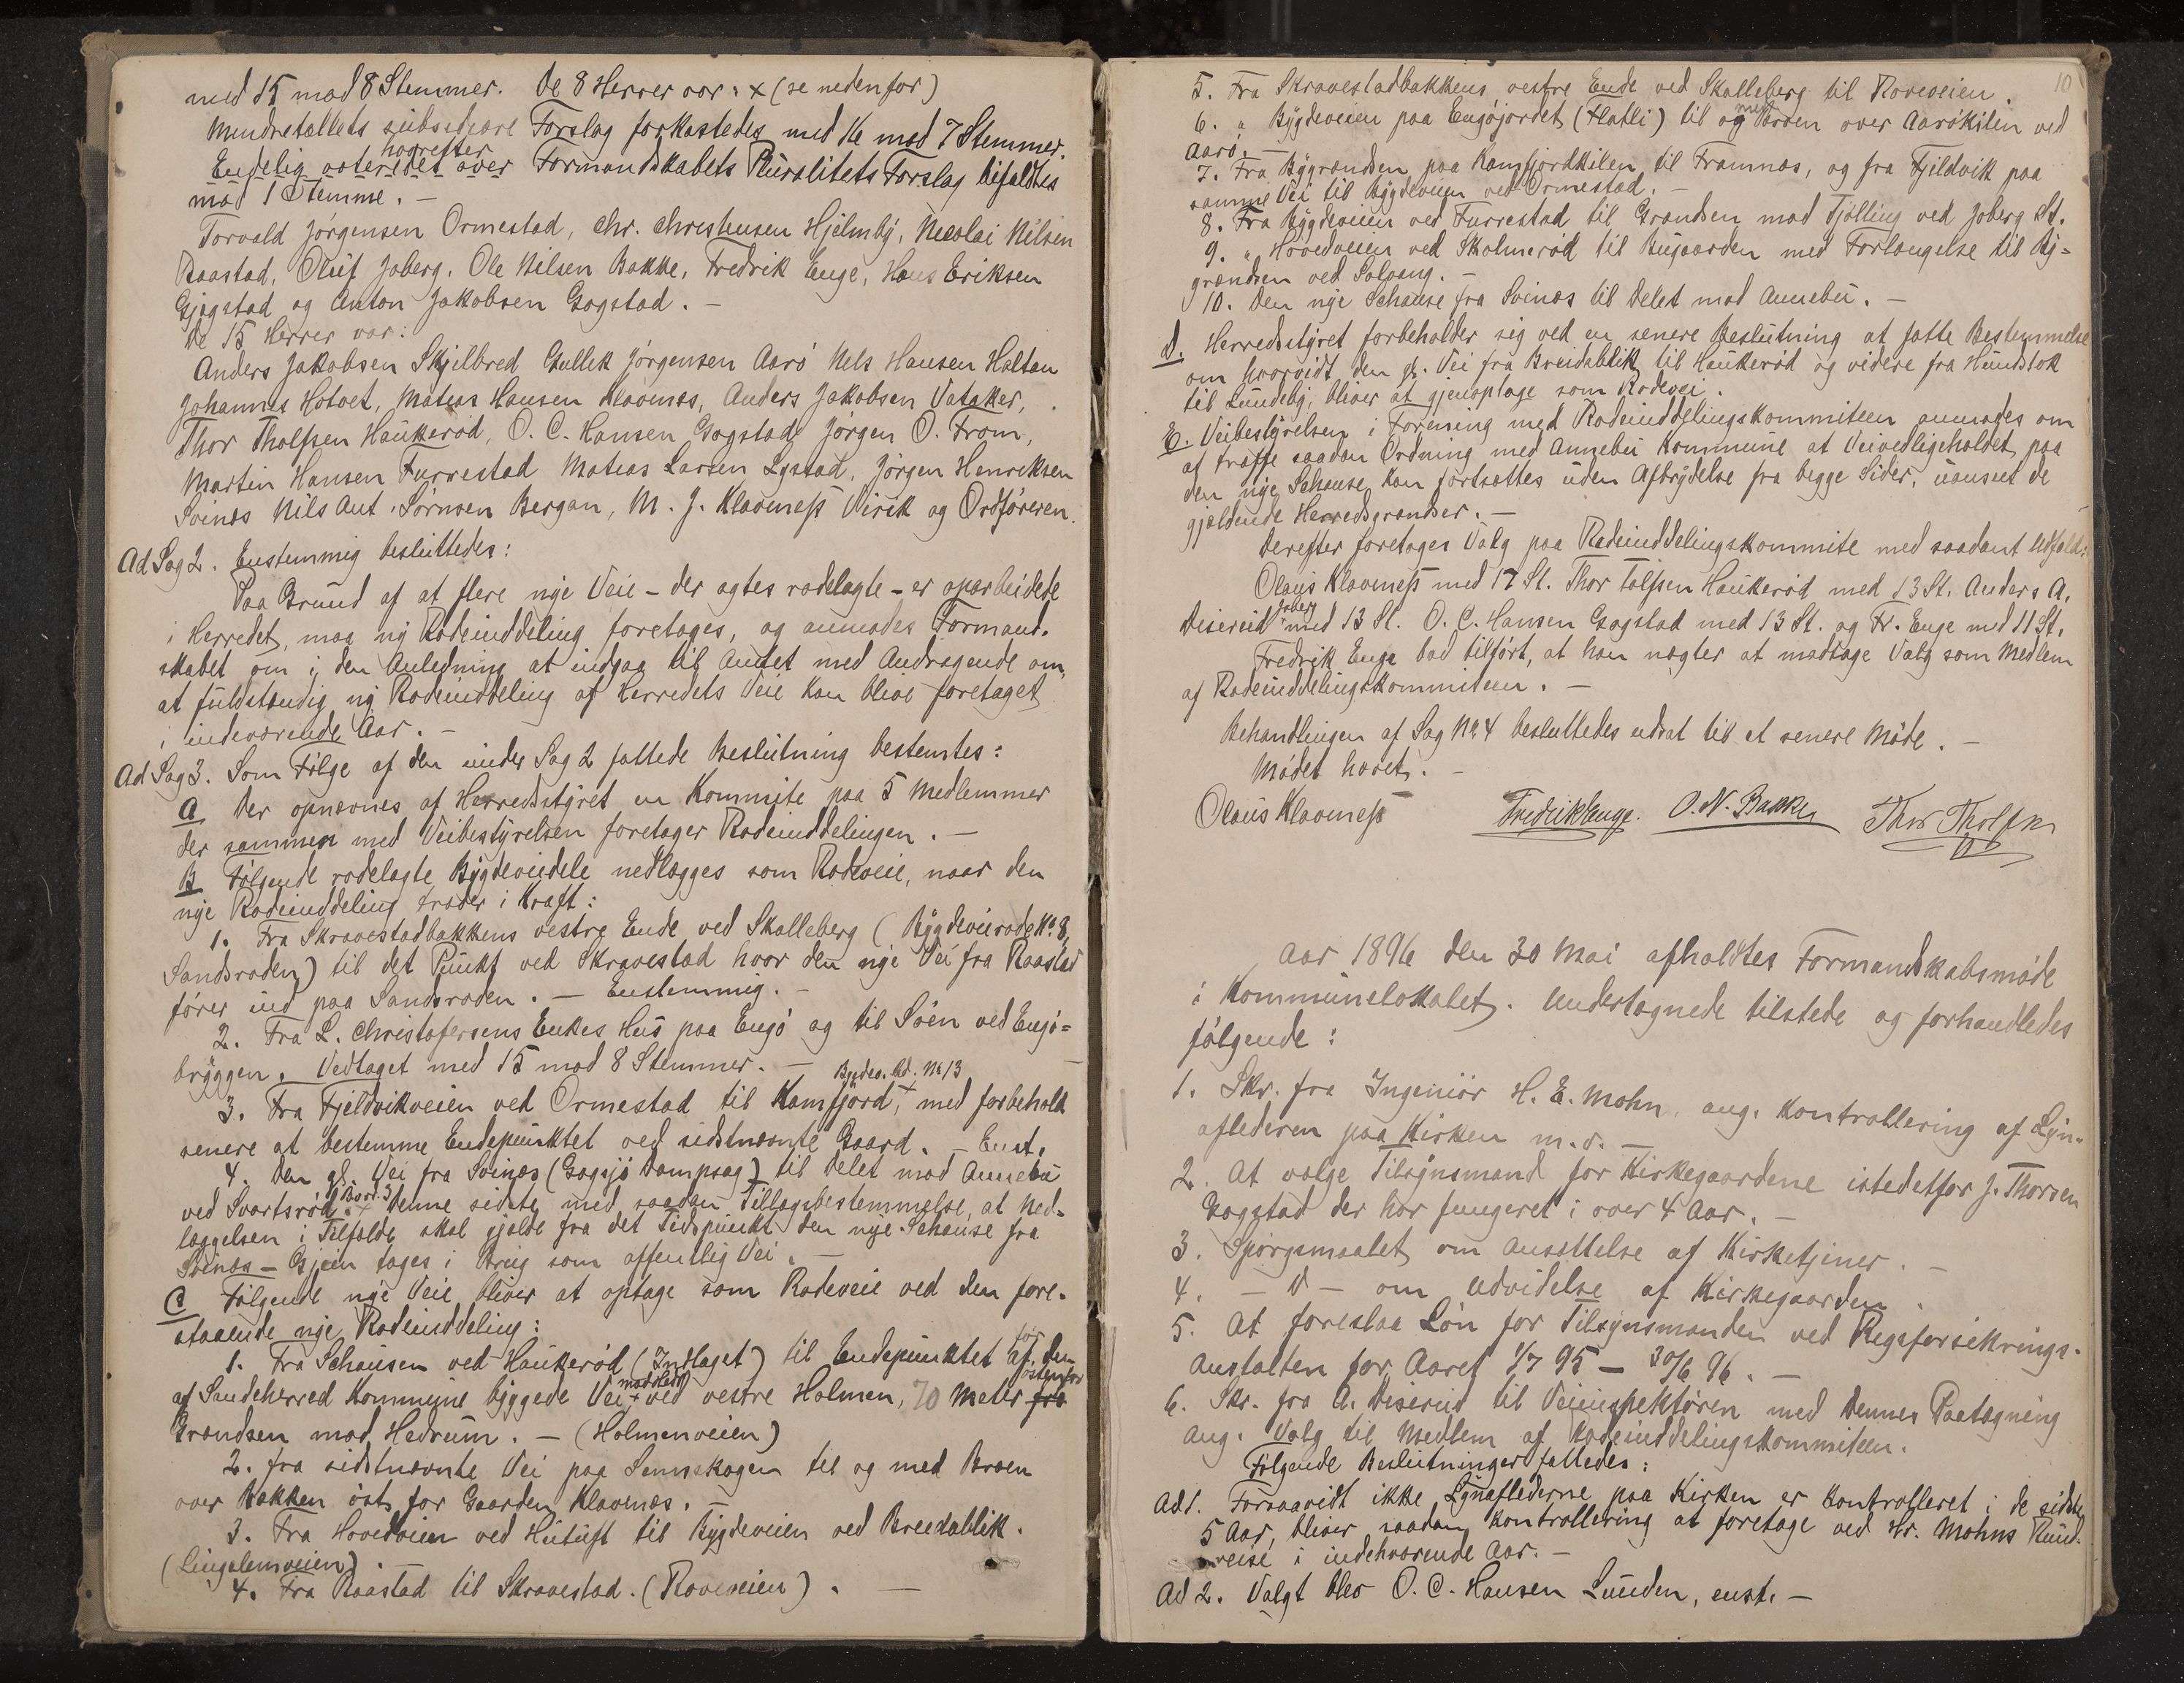 med 15 mod 8 Stemmer. De 8 Herrer var: x (se nedenfor)
Mindretallets subsidiære Forslag forkastedes med 16 mod 7 Stemmer.
hvorefter
Endelig voteredes over Formandskabets Pluralitets Forslag bifaldtes
mod 1 Stemme. —
Torvald Jørgensen Ormestad, Chr. Christensen Hjelmby, Nicolai Nilsen
Raastad, Oluf Joberg, Ole Nilsen Bakke, Fredrik Enge, Hans Eriksen
Gjøgstad og Anton Jakobsen Gogstad. —
De 15 Herrer var:
Anders Jakobsen Skjelbred Gullik Jørgensen Aarø Nels Hansen Haltan
Johannes Hotvet, Matias Hansen Klavenæs, Anders Jakobsen Vataker,
Thor Tholfsen Haukerød, O. C. Hansen Gogstad, Jørgen O. From,
Martin Hansen Furrestad Matias Larsen Lystad, Jørgen Henriksen
Svinæs Nils Ant. Sørnsen Bergan, M. J. Klaveness Virik og Ordføreren.
Ad Sag 2. Enstemmig besluttedes:
Paa Grund af at flere nye Veie – der agtes rodelagte – er oparbeidede
i Herredet, maa ny Rodeinddeling foretages, og anmodes Formand-
skabet om i den Anledning at indgaa til Amtet med Andragende om,
at fuldstændig ny Rodeinddeling af Herredets Veie kan blive foretaget
i indeværende Aar. —
Ad Sag 3. Som Følge af den under Sag 2 fattede Beslutning bestemtes:
A Der opnævnes af Herredsstyret en Kommite paa 5 Medlemmer
der sammen med Veibestyrelsen foretager Rodeinddelingen. —
B Følgende rodelagte Bygdeveidele nedlægges som Rodeveie, naar den
nye Rodeinddeling træder i Kraft:
1. Fra Skravestadbakkens vestre Ende ved Skalleberg (Bygdeveirode No. 8,
Sandsroden) til det Punkt ved Skravestad hvor den nye Vei fra Raastad
fører ind paa Sandsroden. — Enstemmig. —
2. Fra L. Christofersens Enkes Hus paa Engø og til Søen ved Engø=
bryggen. Vedtaget med 15 mod 8 Stemmer. —
Bygdev. Rd. No 13
3. Fra Fjeldvikveien ved Ormestad til Kamfjord, + med forbehold
senere at bestemme Endepunktet ved sidstnævnte Gaard. — Enst.
4. Den gl. Vei fra Svinæs (Gogsjø Dampsag) til Delet mod Annebu
ved Svartsrød. + Denne sidste med saadan Tillægsbestemmelse, at Ned-
læggelsen i Tilfælde skal gjælde fra det Tidspunkt den nye Schause fra
Svinæs – Gjein tages i Brug som offentlig Vei. —
C Følgende nye Veie bliver at optage som Rodeveie ved den fore-
staaende nye Rodeinddeling:
1. Fra Schausen ved Haukerød (Indlaget) til Endepunktet af den for
af Sandeherred Kommune byggede Vei + ved vestre Holmen, 70 Meter fra østenfor
Grændsen mod Hedrum. — (Holmenveien)
2. Fra sidstnævnte Vei paa Sennskogen til og med Broen
over Bækken øst for Gaarden Klavenæs. —
3. Fra Hovedveien ved Hutuft til Bygdeveien ved Breidablik.
(Lingelemveien). —
4. Fra Raastad til Skravestad. (Roveveien). —
10
5. Fra Skravestadbakkens vestre Ende ved Skalleberg til Roveveien.
6. " Bygdeveien paa Engøjordet (Flatli) til og med Broen over Aarøkilen ved
Aarø. —
7. Fra Bygrændsen paa Kamfjordkilen til Framnæs, og fra Fjeldvik paa
samme Vei til Bygdeveien ved Ormestad. —
8. Fra Bygdeveien ved Furrestad til Grændsen mod Tjølling ved Joberg St.
9. " Hovedveien ved Skolmerød til Bugaarden med Forlængelse til By=
grændsen ved Solvang. —
10. Den nye Schause fra Svinæs til Delet mod Annebu. —
D. Herredsstyret forbeholder sig ved en senere Beslutning at fatte Bestemmelse
om hvorvidt den gl. Vei fra Breidablik til Haukerød og videre fra Hundstok
til Lundeby, bliver at gjenoptage som Rodevei.
E. Veibestyrelsen i Forening med Rodeinddelingskommiteen anmodes om
at træffe saadan Ordning med Annebu Kommune at Veivedligeholdet paa
den nye Schause kan fortsættes uden Afbrydelse fra begge Sider, uanseet de
gjældende Herredsgrændser. —
Derefter foretoges Valg paa Rodeinddelingskommite med saadant Udfald:
Olaus Klavness med 17 St. Thor Tolfsen Haukerød med 13 St. Anders A.
Diserud Joberg med 13 St. O. C. Hansen Gogstad med 13 St. og Fr. Enge med 11 St.
Fredrik Enge bad tilført, at han nægter at modtage Valg som Medlem
af Rodeinddelingskommiteen. —
Behandlingen af Sag No 4 besluttedes udsat til et senere Møde. —
Mødet hævet. —
Olaus Klavness Fredrik Enge. O. N. Bakke Thor Tholfsen
Aar 1896 den 30 Mai afholdtes Formandskabsmøde
i Kommunelokalet. Undertegnede tilstede og forhandledes
følgende:
1. Skr. fra Ingeniør H. E. Mohn, ang. Kontrollering af Lyn-
aflederen paa Kirken m. v. —
2. At vælge Tilsynsmand for Kirkegaardene istedetfor J. Thorsen
Gogstad der har fungeret i over 4 Aar. —
3. Spørgsmaalet om Ansættelse af Kirketjener. —
4. — D — om Udvidelse af Kirkegaarden.
5. At foreslaa Løn for Tilsynsmanden ved Rigsforsikrings-
anstalten for Aaret 1/7 95 – 30/6 96. —
6. Skr. fra A. Diserud til Veiinspektøren med dennes Paategning
ang. Valg til Medlem af Rodeinddelingskommiteen.
Følgende Beslutninger fattedes:
Ad 1. Forsaavidt ikke Lynaflederne paa Kirken er Kontrolleret i de sidste
5 Aar, bliver saadan Kontrollering at foretage ved Hr. Mohns Rund-
reise i indehværende Aar. —
Ad 2. Valgt blev O. C. Hansen Lunden, enst. —